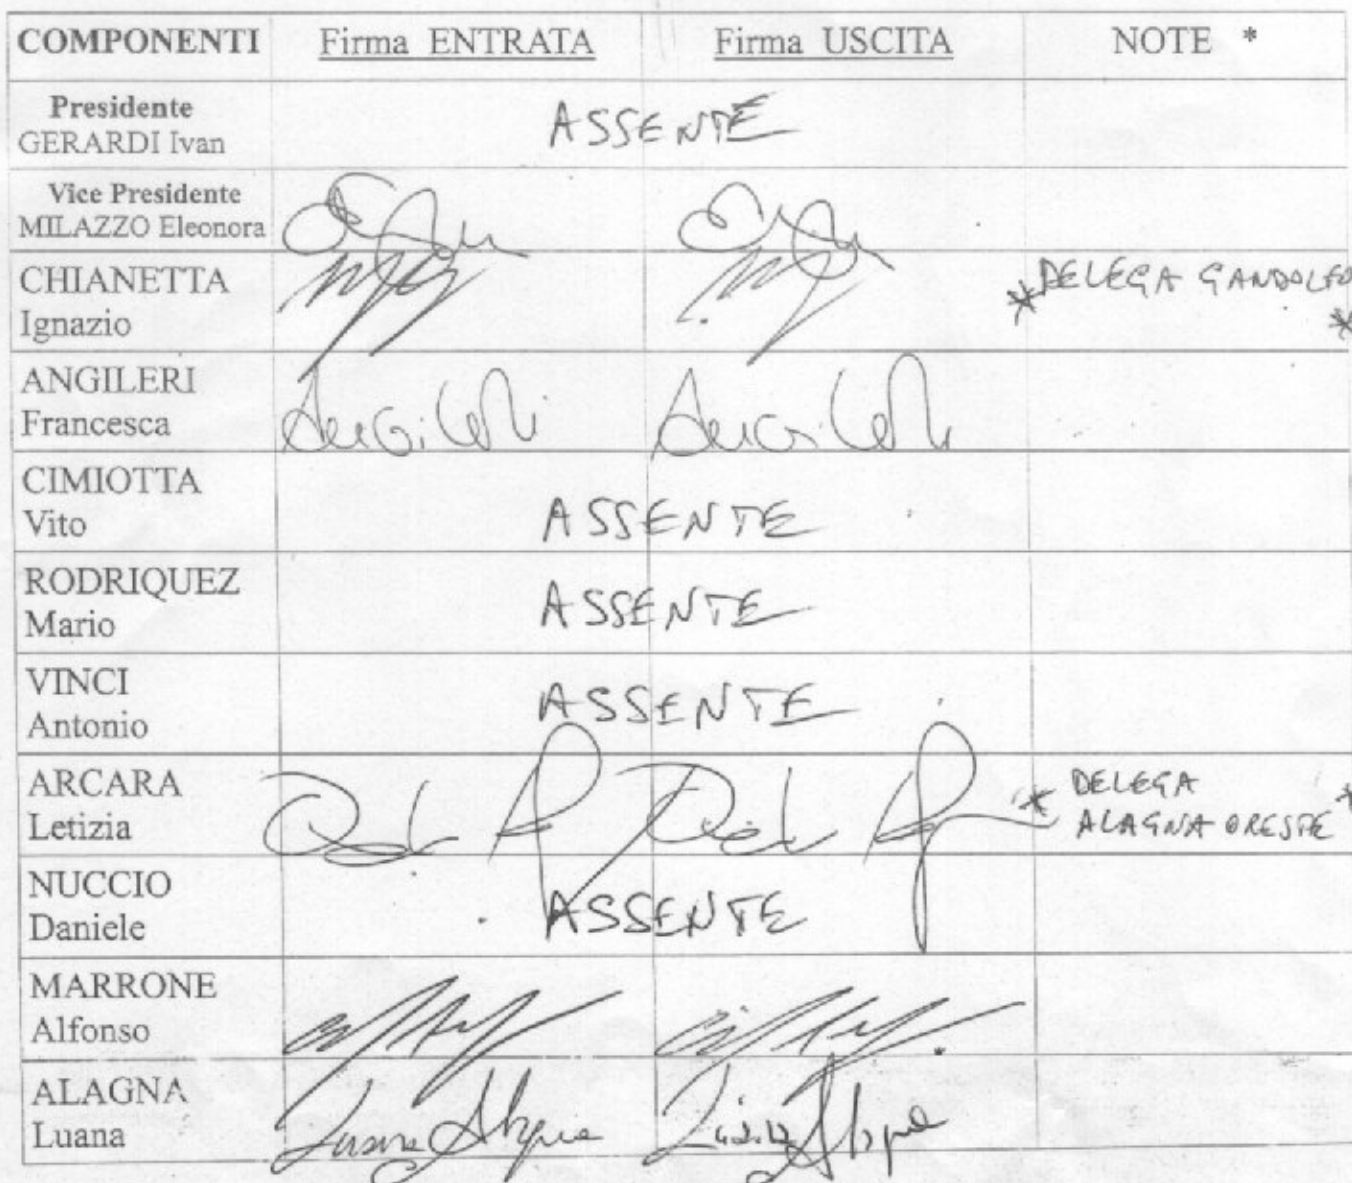 COMPONENTI Firma ENTRATA Firma USCITA NOTE *
Presidente
GERARDI Ivan ASSENTE
Vice Presidente
MILAZZO Eleonora
CHIANETTA
Ignazio * DELEGA GANDOLFO *
ANGILERI
Francesca Angileri Angileri
CIMIOTTA
Vito ASSENTE
RODRIQUEZ
Mario ASSENTE
VINCI
Antonio ASSENTE
ARCARA * DELEGA *
Letizia ALAGNA ORESTE
NUCCIO
Daniele ASSENTE
MARRONE
Alfonso
ALAGNA
Luana Luana Alagna Luana Alagna